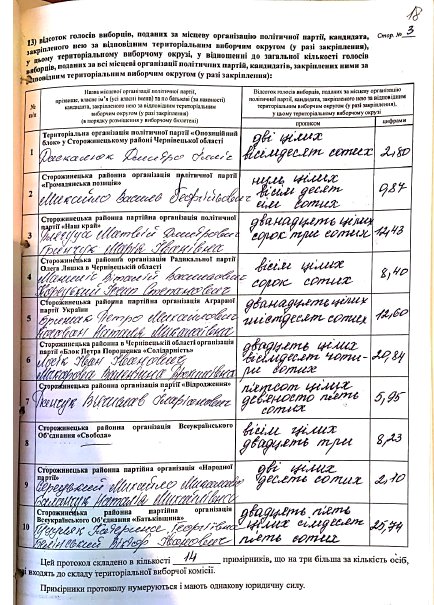 18
Стор. № 3
13) відсоток голосів виборців, поданих за місцеву організацію політичної партії, кандидата,
закріпленого нею за відповідним територіальним виборчим округом (у разі закріплення),
у цьому територіальному виборчому окрузі, у відношенні до загальної кількості голосів
виборців, поданих за всі місцеві організації політичних партій, кандидатів, закріплених ними за
відповідним територіальним виборчим округом (у разі закріплення):
№ п/п
Назва місцевої організації політичної партії,
прізвище, власне ім'я (усі власні імена) та по батькові (за наявності)
кандидата, закріпленого нею за відповідним територіальним
виборчим округом (у разі закріплення)
(в порядку розміщення у виборчому бюлетені)
Відсоток голосів виборців, поданих за місцеву організацію
політичної партії, кандидата, закріпленого нею за відповідним
територіальним виборчим округом (у разі закріплення),
у цьому територіальному виборчому окрузі
прописом
цифрами
1
Територіальна організація політичної партії «Опозиційний
блок» у Сторожинецькому районі Чернівецької області
Дмитро
дві цілих
вісімдесят сотих
2,80
2
Сторожинецька районна організація політичної партії
«Громадянська позиція»
Михайло Василь Георгійович
нуль цілих
вісім десят
сім сотих
0,87
3
Сторожинецька районна партійна організація політичної
партії «Наш край»
Матвій Дмитрович
Марія Іванівна
дванадцять цілих
сорок три сотих
12,43
4
Сторожинецька районна організація Радикальної партії
Олега Ляшка в Чернівецькій області
Віталій Васильович
вісім цілих
сорок сотих
8,40
5
Сторожинецька районна партійна організація Аграрної
партії України
Петро Михайлович
Наталія Миколаївна
дванадцять цілих
шістдесят сотих
12,60
6
Сторожинецька районна в Чернівецькій області організація
партії «Блок Петра Порошенка «Солідарність»
Іван Іванович
Макарова
двадцять цілих
вісімдесят чоти-
ри сотих
20,84
7
Сторожинецька районна організація партії «Відродження»
Іларіонович
п'ять цілих
дев'яносто п'ять
сотих
5,95
8
Сторожинецька районна організація Всеукраїнського
Об'єднання «Свобода»
вісім цілих
двадцять три
8,23
9
Сторожинецька районна партійна організація «Народної
партії»
Михайло Миколайович
Наталія Михайлівна
дві цілих
десять сотих
2,10
10
Сторожинецька районна партійна організація
Всеукраїнського Об'єднання «Батьківщина»
Георгіївна
Віктор Іванович
двадцять п'ять
цілих сімдесят
сотих
Цей протокола складено в кількості 14 примірників, що на три більша за кількість осіб,
які входять до складу територіальної виборчої комісії.
Примірники протоколу нумеруються і мають однакову юридичну силу.